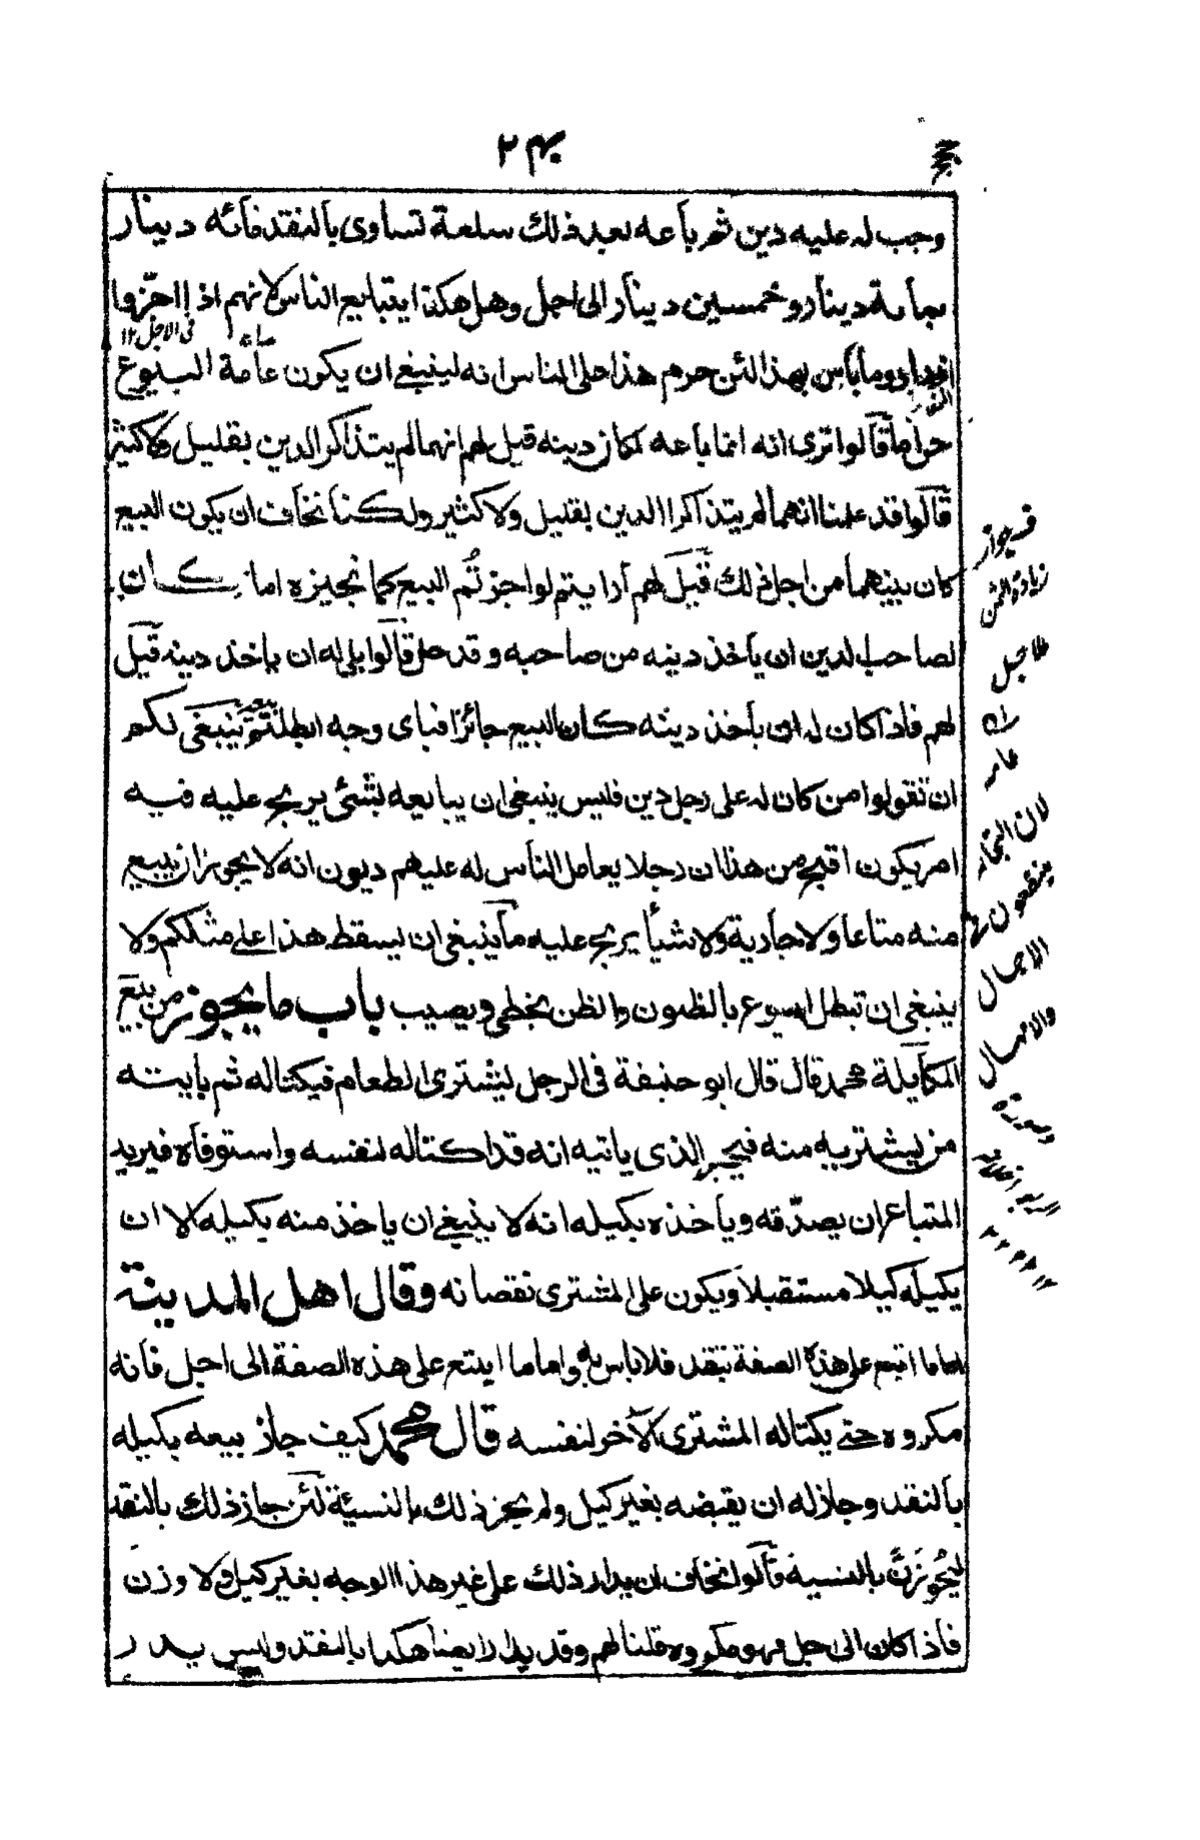 ۲۴۰
وجب له عليه دين ثم باعه بعد ذلك سلعة تساوى بالنقد مائه دينار
بمأية دينار وخمسين دينار الى اجل وهل هكذا يتبايع الناس لانهم اذا اخروا
فى الاجل ١٢
ازدادوا وما بأس بهذا لئن حرم هذا على الناس انه لينبغى ان يكون عامة البيوع
حراما قالوا ترى انه انما باعه لمكان دينه قيل لهم انهما لم يتذاكر الدين بقليل ولا كثير
قالوا قد علمنا انهما لم يتذاكرا الدين بقليل ولا كثير ولكنا نخاف ان يكون البيع
كان بينهما من اجل ذلك قيل لهم أرايتم لو اجزتم البيع كما نجيزه اما كان
لصاحب الدين ان يأخذ دينه من صاحبه وقد حل قالوا بلى له ان يأخذ دينه قيل
لهم فاذا كان له ان يأخذ دينه كان البيع جائزا فباى وجه ابطلتموه ينبغى لكم
ان تقولوا من كان له على رجل دين فليس ينبغى ان يبايعه بشئى يربح عليه فيه
امر يكون اقبح من هذا ان رجلا يعامل الناس له عليهم ديون انه لا يجوز ان يبيع
منه متاعا ولا جارية ولا شيأ يربح عليه ما ينبغى ان يسقط هذا على مثلكم ولا
ينبغى ان تبطل البيوع بالظنون والظن يخطى ويصيب باب ما يجوز من بيع
المكايلة محمد قال قال ابو حنيفة فى الرجل يشترى الطعام فيكتاله ثم يأيته
من يشتريه منه فيخبر الذى ياتيه انه قد اكتاله لنفسه واستوفاه فيريد
المتباع ان يصدّقه ويأخذه بكيله انه لا ينبغى ان ياخذ منه بكيله الا ان
يكيله كيلا مستقبلا ويكون على المشترى نقصانه وقال اهل المدينة
اما ما ابتيع على هذه الصفة بنقد فلا باس به واما ما ابتيع على هذه الصفة الى اجل فانه
مكروه حتى يكتاله المشترى الآخر لنفسه قال محمد كيف جاز بيعه بكيله
بالنقد وجاز له ان يقبضه بغير كيل ولم يجز ذلك بالنسيئة لئن جاز ذلك بالنقد
ليجوزنّ بالنسية قالوا نخاف ان يدار ذلك على غير هذا الوجه بغير كيل ولا وزن
فاذا كان الى اجل فهو مكروه قلنا لهم وقد يدار ايضا هكذا بالنقد وليس يدر
فى جواز
زيادة الثمن
للاجل
لان التجار
والامهال